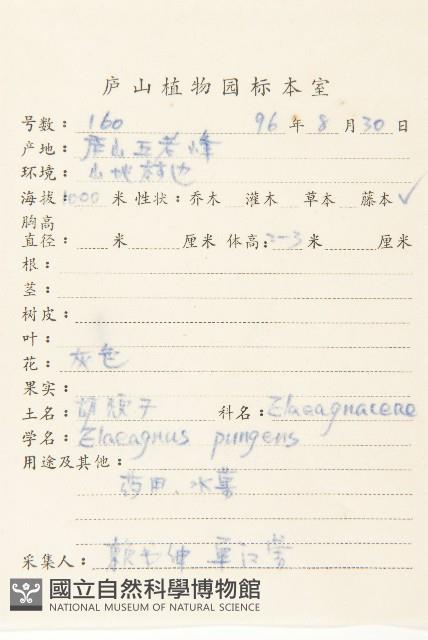 庐山植物园标本室
号数：160 96年8月30日
产地：庐山五老峰
环境：山地林边
海拔：1000米 性状：乔木 灌木 草本 藤本✓
胸高
直径： 米 厘米 体高：2-3米 厘米
根：
茎：
树皮：
叶：
花：灰色
果实：
土名：胡颓子 科名：Elaeagnaceae
学名：Elaeagnus pungens
用途及其他：
药用、水果
采集人：
國立自然科學博物館
NATIONAL MUSEUM OF NATURAL SCIENCE